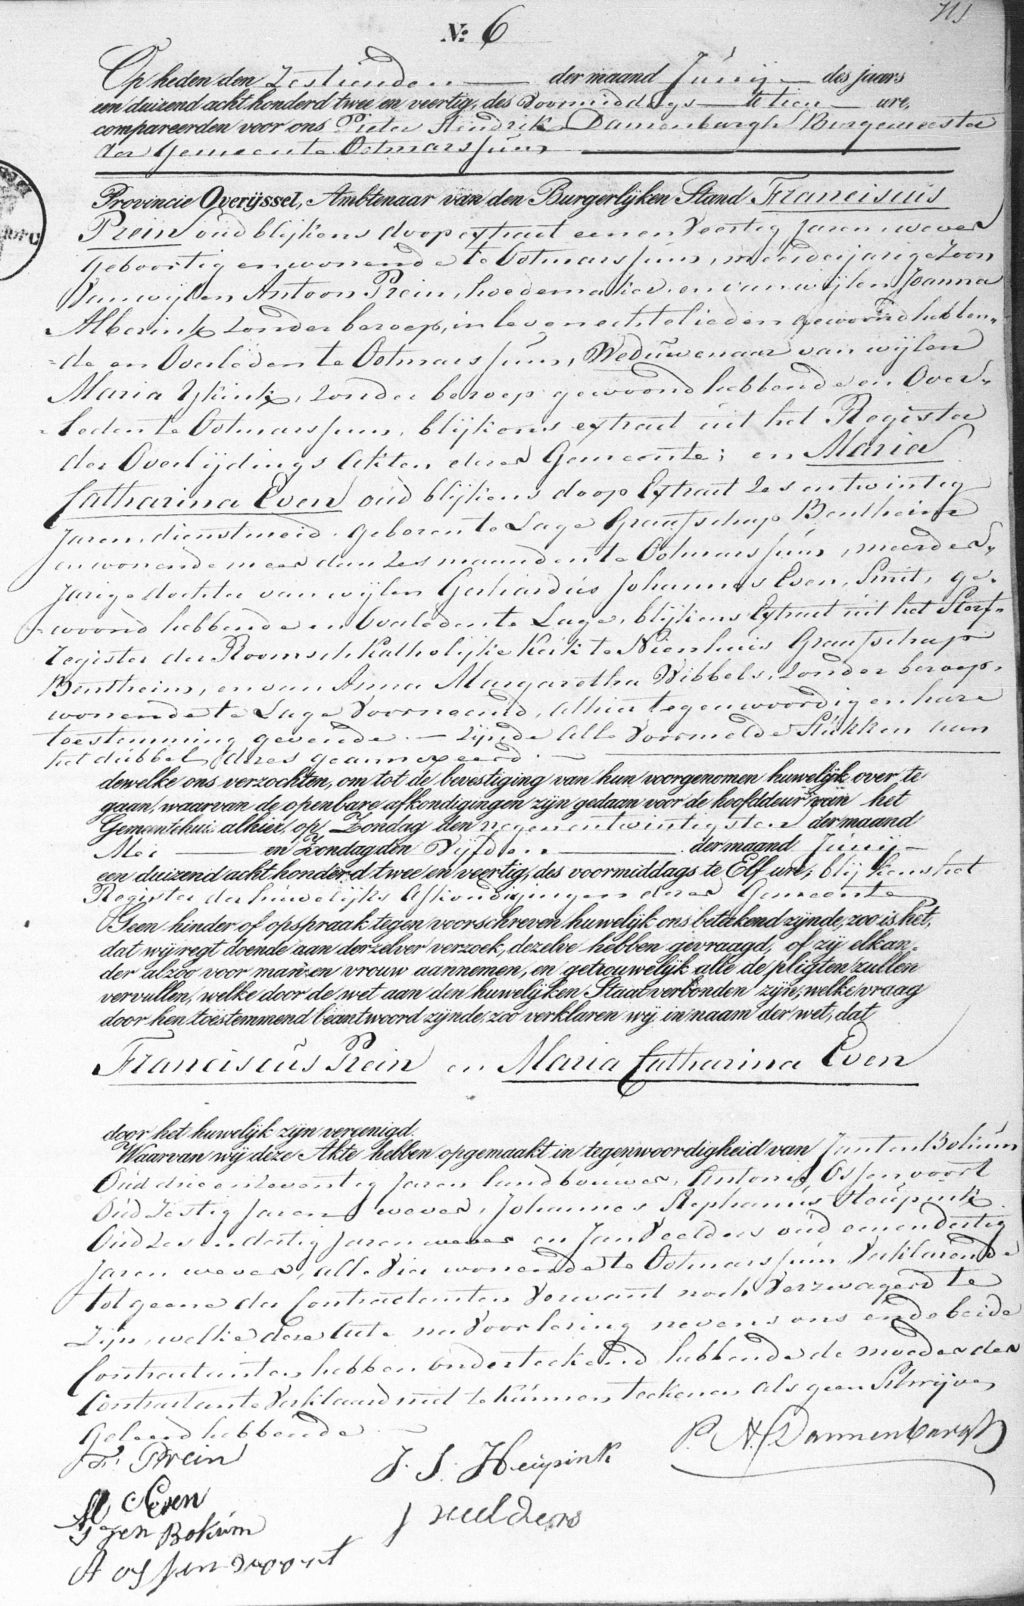 No: 6
Op heden den Zestienden der maand Junij des jaars
een duizend acht honderd twee en veertig, des Voormiddags te tien ure,
compareerden voor ons Pieter Hindrik Dannenbargh Burgemeester
der Gemeente Ootmarssum
Provincie Overijssel, Ambtenaar van den Burgerlijken Stand Franciscus
Prein oud blijkens doop extract een en Veertig Jaren, wever
geboortig en wonende te Ootmarssum, meerderjarige Zoon
Van wijlen Antoon Prein, hoedemaker en van wijlen Joanna
Alberink Zonder beroep, in leven echtelieden gewoond hebben-
-de en Overleden te Ootmarssum, Weduwenaar van wijlen
Maria Ykink, Zonder beroep gewoond hebbende en Over-
-leden te Ootmarssum, blijkens extract uit het Register
der Overlijdings Akten dezer Gemeente; en Maria
Catharina Even oud blijkens doop Extract Zes en twintig
Jaren, dienstmeid, geboren te Lage Graafschap Bentheim
en wonende meer dan Zes maanden te Ootmarssum, meerder-
Jarige dochter van wijlen Gerhardus Johannes Even, Smit, ge-
-woond hebbende en Overleden te Lage, blijkens Extract uit het Sterf-
register der Roomsch Katholijke Kerk te Nienhuis Graafschap
Bentheim, en van Anna Margaretha Wibbels, Zonder beroep,
wonende te Lage Voornoemd, alhier tegenwoordig en hare
toestemming gevende. — Zijnde Alle Voormelde Stukken aan
het dubbel dezes geannexeerd. —
dewelke ons verzochten, om tot de bevestiging van hun voorgenomen huwelijk over te
gaan, waarvan de openbare afkondigingen zijn gedaan voor de hoofddeur van het
Gemeentehuis alhier, op Zondag den negenentwintigsten der maand
Mei en Zondag den Vijfden der maand Junij
een duizend acht honderd twee en veertig, des voormiddags te Elf ure, blijkens het
Register der huwelijks Afkondigingen dezer Gemeente
Geen hinder of opspraak tegen voorschreven huwelijk ons betekend zijnde, zoo is het,
dat wij regt doende aan derzelver verzoek, dezelve hebben gevraagd, of zij elkan-
der alzoo voor man en vrouw aannemen, en getrouwelijk alle de pligten zullen
vervullen, welke door de wet aan den huwelijken Staat verbonden zijn, welke vraag
door hen toestemmend beantwoord zijnde, zoo verklaren wij in naam der wet, dat
Franciscus Prein en Maria Catharina Even
door het huwelijk zijn vereenigd.
Waarvan wij deze Akte hebben opgemaakt in tegenwoordigheid van Jan ten Bokum
Oud drie en Zeventig Jaren landbouwer, Antonij Ossenvoort
Oud Zestig Jaren wever, Johannes Stephanus Heupink
Oud Zes en dertig Jaren wever en Jan Veelders oud een en dertig
Jaren wever, alle Vier wonende te Ootmarssum Verklarende
tot geene der Contractenten Verwant noch Verzwagerd te
Zijn, welke deze acte na Voorlezing nevens ons en de beide
Contractanten hebben onderteekend, hebbende de moeder der
Contractante Verklaard niet te kunnen teekenen als geen Schrijven
Geleerd hebbende. —
F. Prein
M C Even
J ten Bokum
A ossenvoort
J. S. Heupink
J veelders
P. H. Dannenbargh